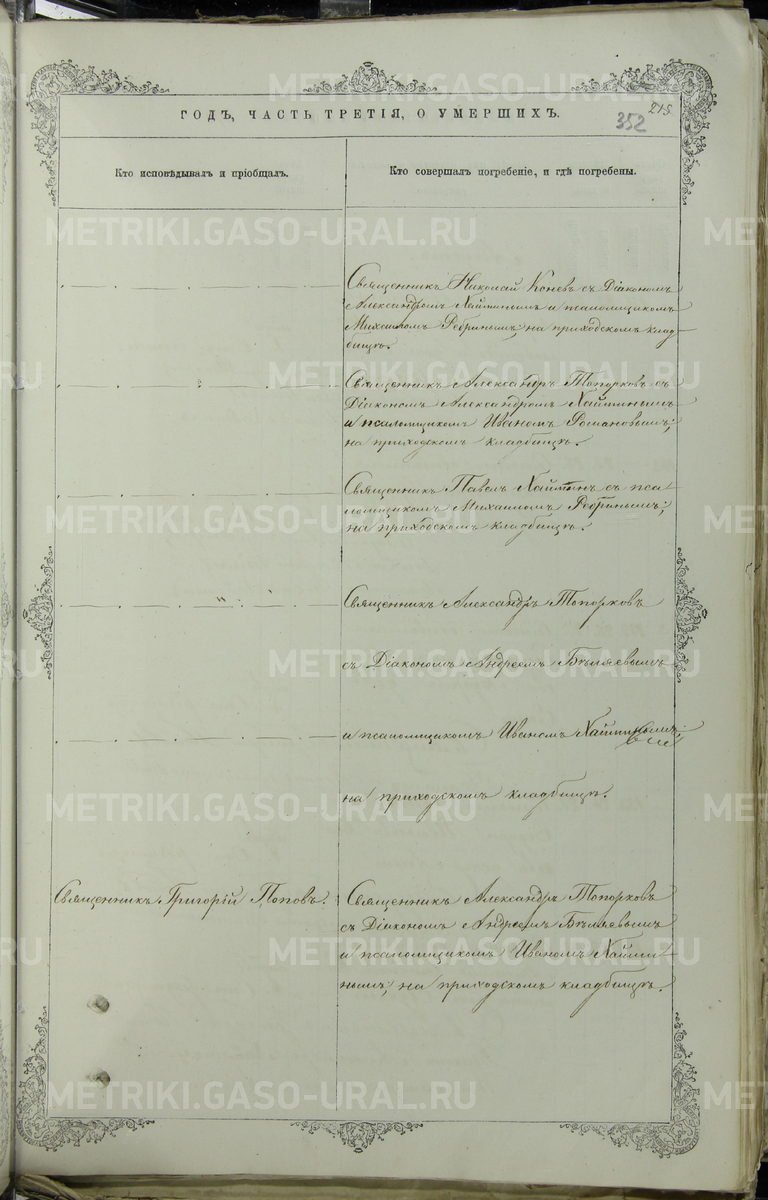 ГОДЪ, ЧАСТЬ ТРЕТІЯ, О УМЕРШИХЪ.
352
215.
Кто исповѣдывалъ и пріобщалъ.
Кто совершалъ погребеніе, и гдѣ погребены.
Священникъ Николай Коневъ съ Діакономъ
Александромъ Хайминымъ и псаломщикомъ
Михаиломъ Ребринымъ, на приходскомъ клад-
бищѣ.
Священникъ Александръ Топорковъ съ
Діакономъ Александромъ Хайминымъ
и псаломщикомъ Иваномъ Романовымъ;
на приходскомъ кладбищѣ.
Священникъ Павелъ Хайминъ съ пса-
ломщикомъ Михаиломъ Ребринымъ;
на приходскомъ кладбищѣ.
Священникъ Александръ Топорковъ
съ Діакономъ Андреемъ Бѣляевымъ
и псаломщикомъ Иваномъ Хайминымъ;
на приходскомъ кладбищѣ.
Священникъ Григорій Поповъ.
Священникъ Александръ Топорковъ
съ Діакономъ Андреемъ Бѣляевымъ
и псаломщикомъ Иваномъ Хайми-
нымъ, на приходскомъ кладбищѣ.
METRIKI.GASO-URAL.RU